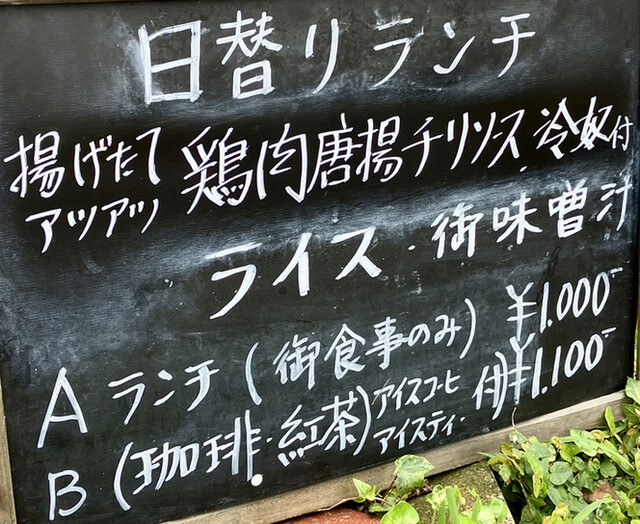 日替りランチ
揚げたて アツアツ 鶏肉唐揚チリソース 冷奴付
ライス・御味噌汁
A ランチ(御食事のみ) ¥1.000-
B (珈琲・紅茶) アイスコーヒ アイスティー 付 ¥1.100-